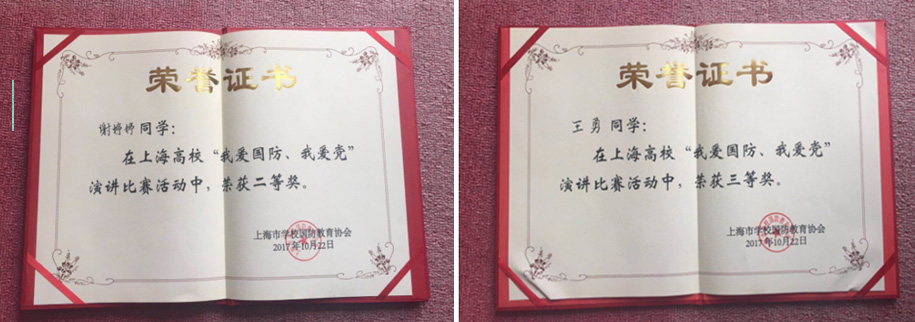 荣誉证书
谢婷婷 同学：
在上海高校“我爱国防、我爱党”
演讲比赛活动中，荣获二等奖。
上海市学校国防教育协会
2017年10月22日
荣誉证书
王勇 同学：
在上海高校“我爱国防、我爱党”
演讲比赛活动中，荣获三等奖。
上海市学校国防教育协会
2017年10月22日